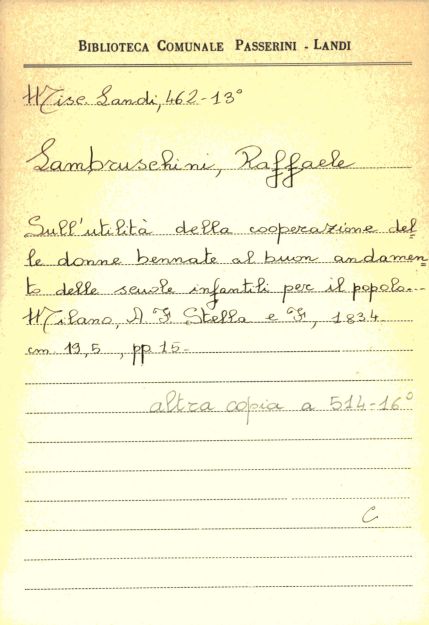 BIBLIOTECA COMUNALE PASSERINI - LANDI
Misc. Landi, 462-13°
Lambruschini, Raffaele
Sull'utilità della cooperazione del=
le donne bennate al buon andamen=
to delle scuole infantili per il popolo.-
Milano, A. F. Stella e F., 1834
cm 19,5, pp 15-
altra copia a 514-16°
C